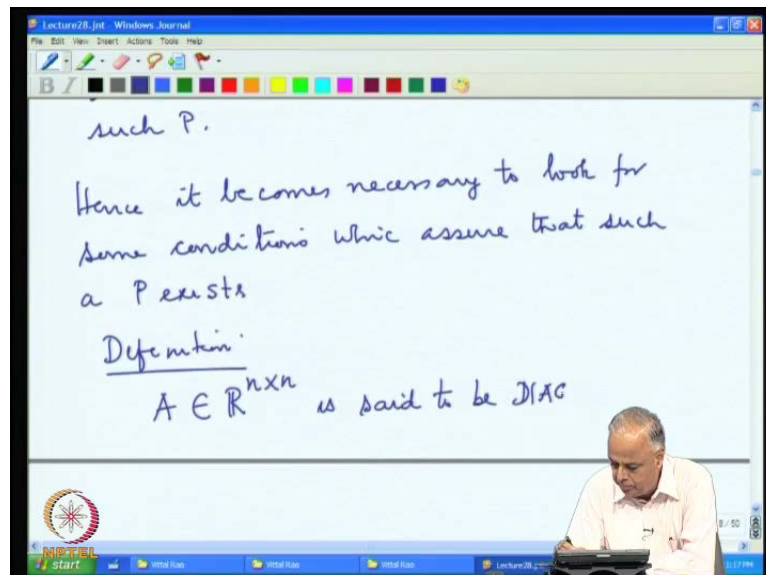 Lecture28.jnt - Windows Journal
File Edit View Insert Actions Tools Help
B I
such P.
Hence it becomes necessary to look for
some conditions whic assure that such
a P exists
Defenition.
A ∈ ℝⁿˣⁿ is said to be DIAG
8 / 50
NPTEL
start Vittal Rao Vittal Rao Vittal Rao Lecture28.j 1:17 PM